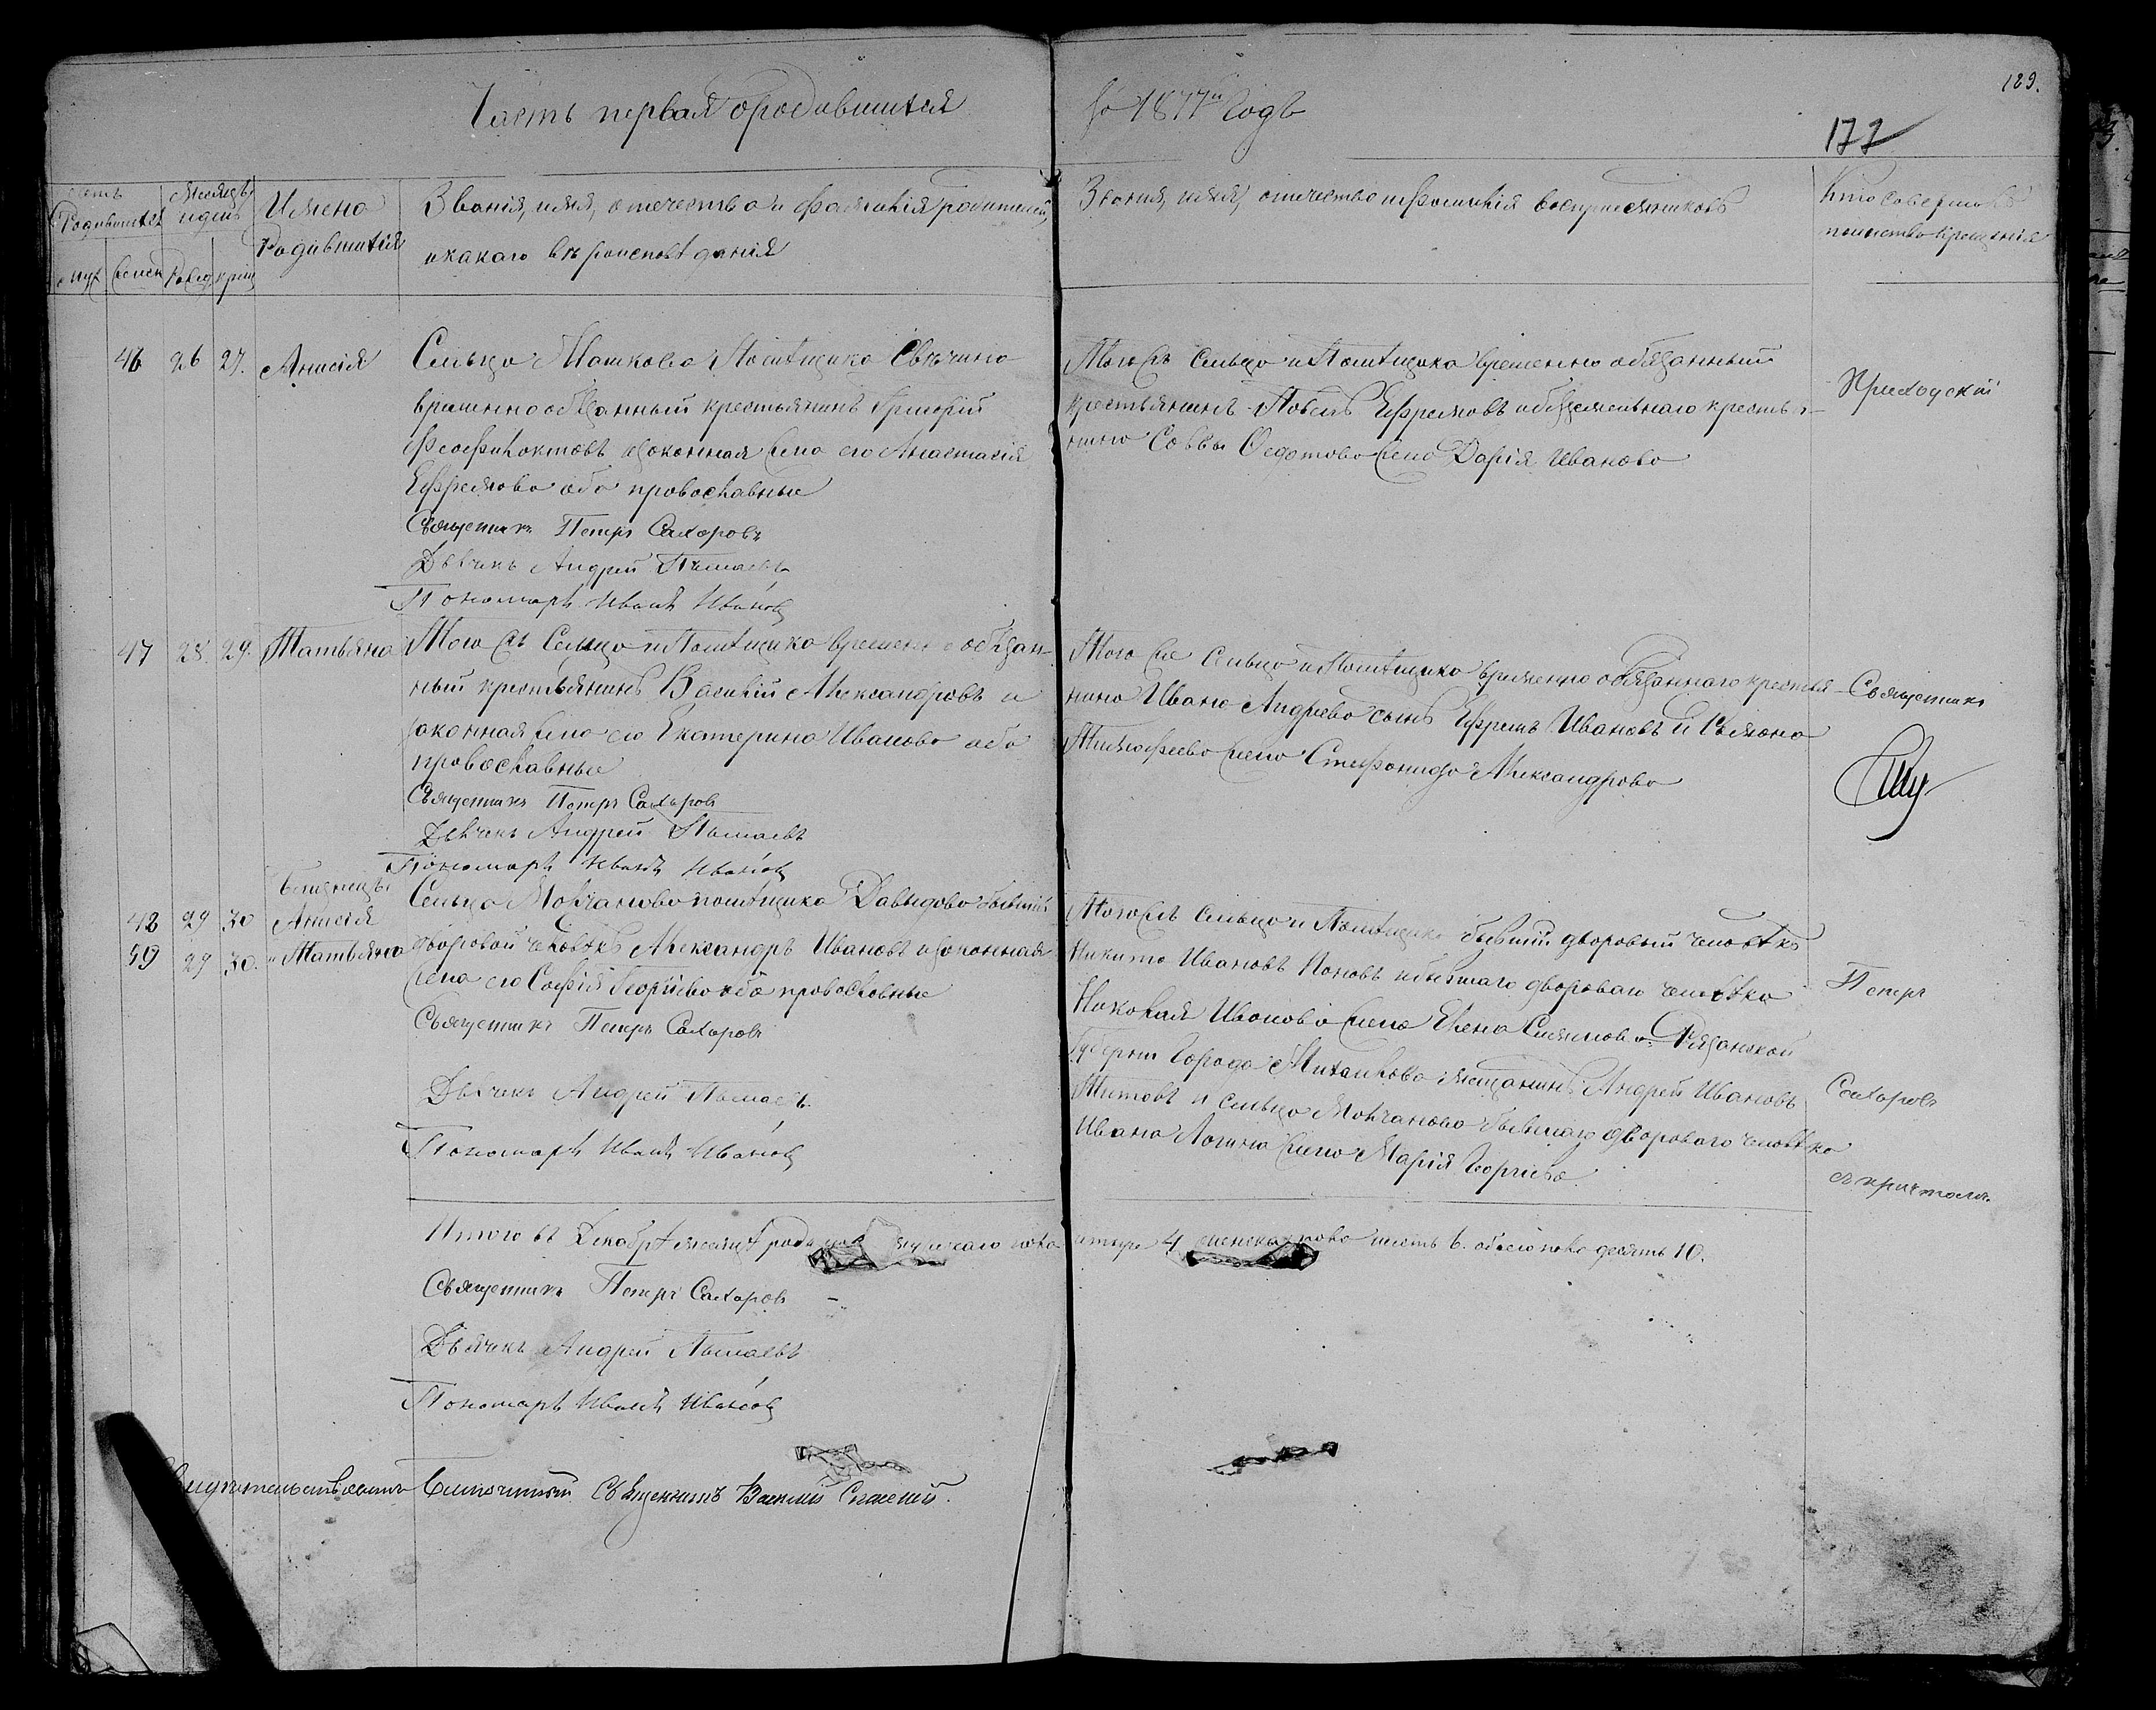 Часть первая о родившихся
за 1877й годъ
189.
177
Счетъ
Родившихся
Мѣсяцъ
и день
Имена
Родившихся
Званія, имя, отечество и фамилія родителей,
и какого вѣроисповѣданія
муж Женск Рожд крещ
Званія, имя, отечество и фамилія воспріемниковъ
Кто совершалъ
таинство крещенія
46 26 27. Анисія
Сельца Машкова Помѣщика Свѣчина
временнообязанный крестьянинъ Григорій
Феофилактовъ и законная жена его Анастасія
Ефремова оба православные
Священникъ Петръ Сахаровъ
Дьячекъ Андрей
Пономарь Иванъ Ивановъ
Того жъ Сельца и Помѣщика временно обязанный
крестьянинъ Павелъ Ефремовъ и безземельнаго крестья-
нина Саввы Федотова жена Дарія Иванова
Приходскій
47 28. 29. Татьяна
Того жъ Сельца и Помѣщика временно обязан-
ный крестьянинъ Василій Александровъ и
законная жена его Екатерина Иванова оба
православные
Священникъ Петръ Сахаровъ
Дьячекъ Андрей
Пономарь Иванъ Ивановъ
Того же Сельца и Помѣщика временно обязаннаго крестья-
нина Ивана Андреева сынъ Ефремъ Ивановъ и
Тимофеева жена Стефанида Александрова
Священникъ
Близнецы
48 29 30 Анисія
49 29 30. Татьяна
Сельца Молчанова помѣщика Давыдова бывшій
дворовой человѣкъ Александръ Ивановъ и законная
жена его Софія Георгіева оба православные
Священникъ Петръ Сахаровъ
Дьячекъ Андрей
Пономарь Иванъ Ивановъ
Того жъ сельца и Помѣщика бывшій дворовый человѣкъ
Никита Ивановъ Поновъ и бывшаго двороваго человѣка
Николая Иванова жена Елена Рязанской
Губерніи Города Михайлова мещанинъ Андрей Ивановъ
Титовъ и сельца Молчанова бывшаго двороваго человѣка
Ивана Логина жена Марія Георгіева.
Петръ
Сахаровъ
съ причтомъ.
Итого въ Декабрѣ мѣсяцѣ мужескаго пола
четыре 4 женска пола шесть 6. обоего пола десять 10.
Священникъ Петръ Сахаровъ
Дьячекъ Андрей
Пономарь Иванъ Ивановъ
Благочинный Священникъ Василій